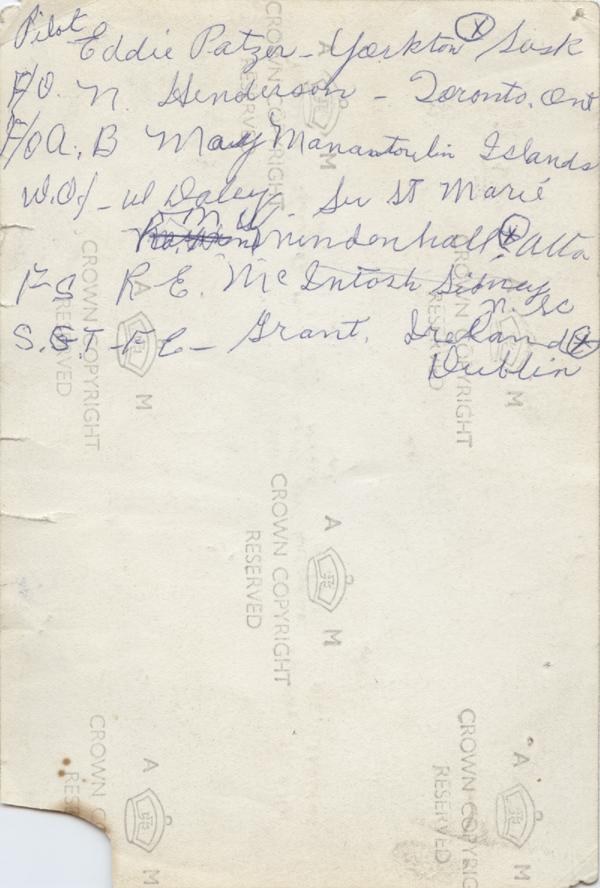 Pilot Eddie Patzer - Yorkton (X) Sask
F/O. N. Henderson - Toronto. Ont
F/O A. B May Manantoulin Islands
W.O/ - W Daley - Su St Marié
R M G. Mindenhall (X) Alta
F S R E. McIntosh Sidney
N. SC
S.G.T. - F E - Grant. Ireland (X)
Dublin
A M
CROWN COPYRIGHT
RESERVED
A M
CROWN COPYRIGHT
RESERVED
A M
CROWN COPYRIGHT
RESERVED
A M
CROWN COPYRIGHT
RESERVED
A M
CROWN C
RES
A M
CROWN COPYRIG
RESERVED